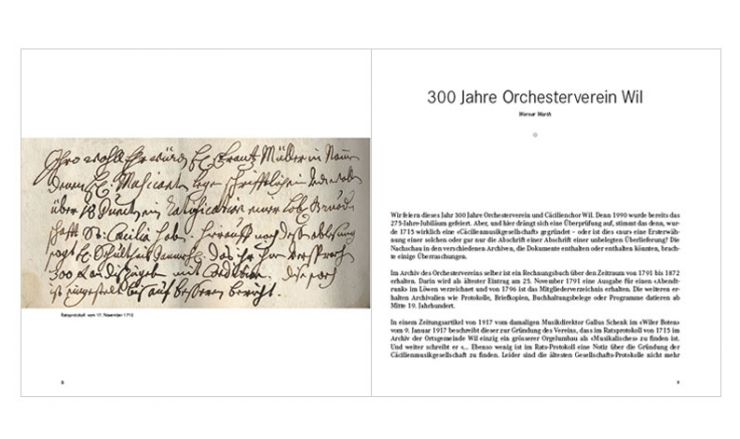 über 18 Puncten ein Ratification einer Lobl. Bruder-
schafft St: Cæcilia hab. hierauff nach dess ablessung
sagt H: Schultheis
300
ist eingestelt bis auf besseren bericht.
Ratsprotokoll vom 17. November 1715
8
300 Jahre Orchesterverein Wil
Werner Warth
Wir feiern dieses Jahr 300 Jahre Orchesterverein und Cäcilienchor Wil. Denn 1990 wurde bereits das
275-Jahre-Jubiläum gefeiert. Aber, und hier drängt sich eine Überprüfung auf, stimmt das denn, wur-
de 1715 wirklich eine «Cäcilienmusikgesellschaft» gegründet – oder ist dies «nur» eine Ersterwäh-
nung einer solchen oder gar nur die Abschrift einer Abschrift einer unbelegten Überlieferung? Die
Nachschau in den verschiedenen Archiven, die Dokumente enthalten oder enthalten könnten, brach-
te einige Überraschungen.
Im Archiv des Orchestervereins selber ist ein Rechnungsbuch über den Zeitraum von 1791 bis 1872
erhalten. Darin wird als ältester Eintrag am 25. November 1791 eine Ausgabe für einen «Abend-
trunk» im Löwen verzeichnet und von 1796 ist das Mitgliederverzeichnis erhalten. Die weiteren er-
haltenen Archivalien wie Protokolle, Briefkopien, Buchhaltungsbelege oder Programme datieren ab
Mitte 19. Jahrhundert.
In einem Zeitungsartikel von 1917 vom damaligen Musikdirektor Gallus Schenk im «Wiler Boten»
vom 9. Januar 1917 beschreibt dieser zur Gründung des Vereins, dass im Ratsprotokoll von 1715 im
Archiv der Ortsgemeinde Wil einzig ein grösserer Orgelumbau als «Musikalisches» zu finden ist.
Und weiter schreibt er «... Ebenso wenig ist im Rats-Protokoll eine Notiz über die Gründung der
Cäcilienmusikgesellschaft zu finden. Leider sind die ältesten Gesellschafts-Protokolle nicht mehr
9